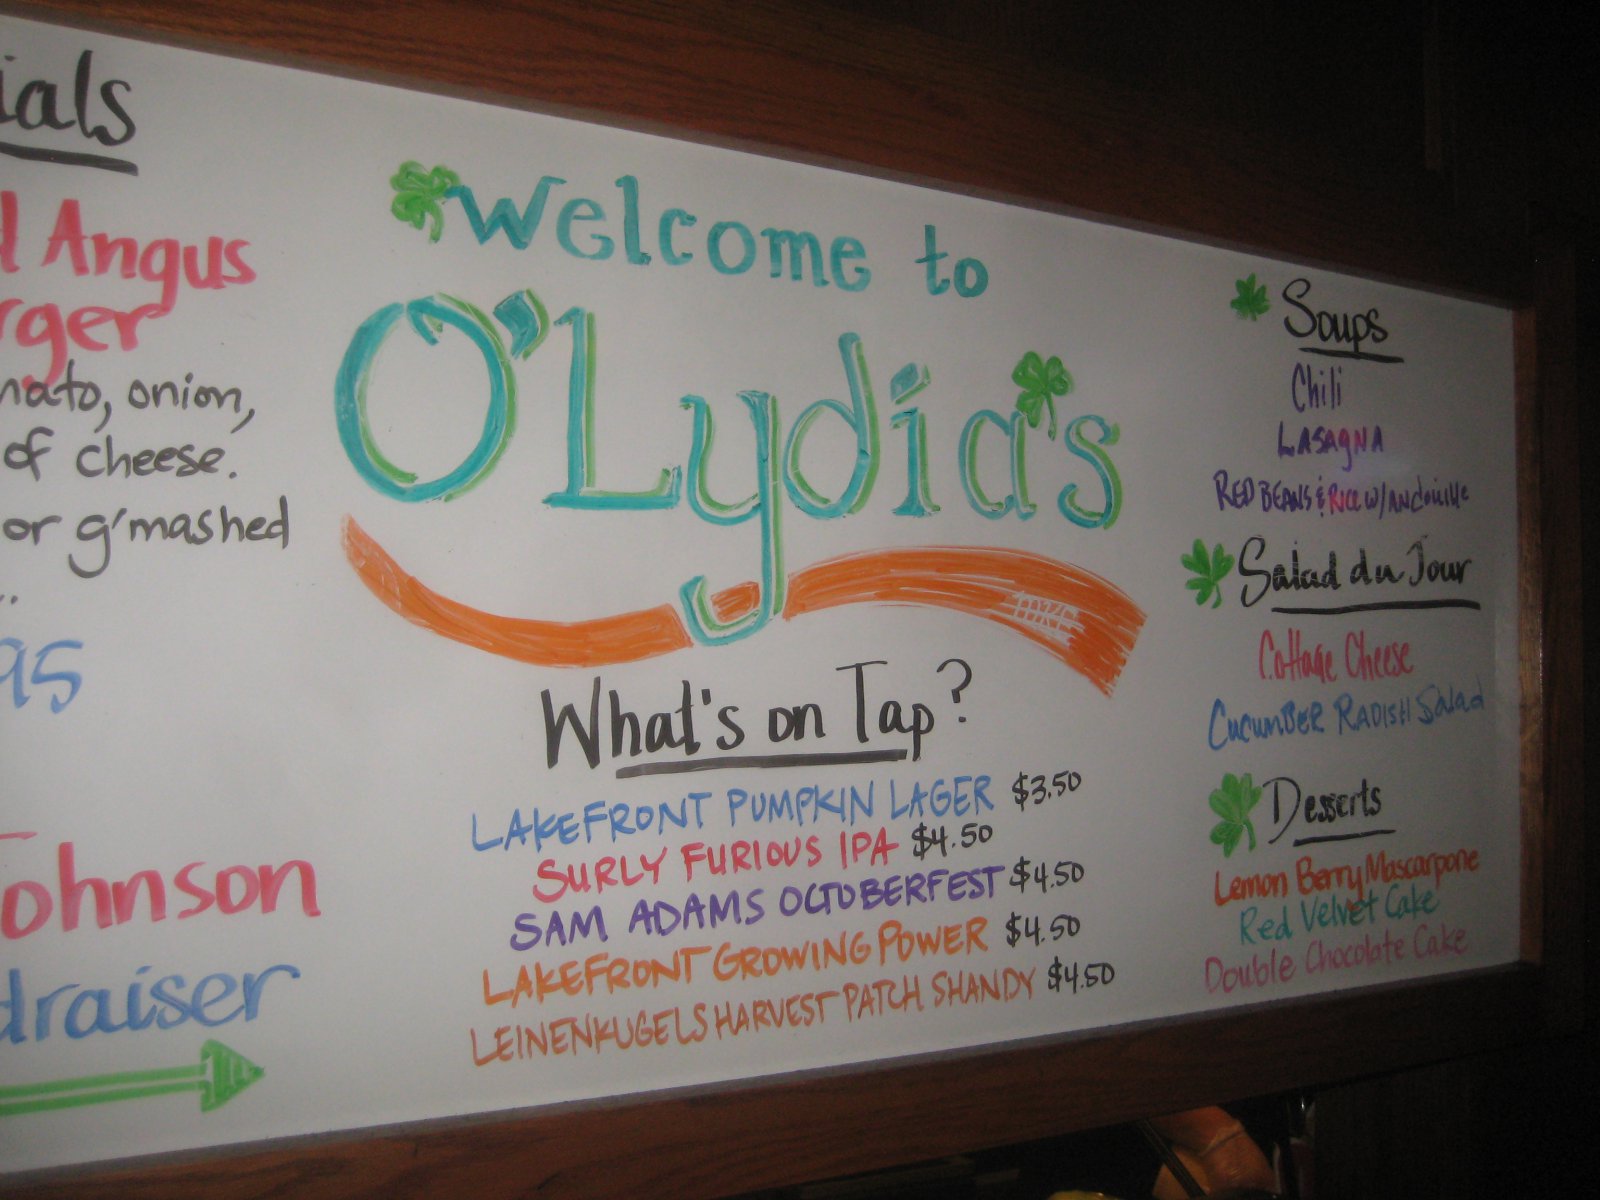 ials
d Angus
rger
mato, onion,
of cheese.
or g'mashed
..
95
Johnson
draiser
Welcome to
O'Lydia's
What's on Tap?
LAKEFRONT PUMPKIN LAGER $3.50
SURLY FURIOUS IPA $4.50
SAM ADAMS OCTOBERFEST $4.50
LAKEFRONT GROWING POWER $4.50
LEINENKUGELS HARVEST PATCH SHANDY $4.50
Soups
Chili
LASAGNA
RED BEANS & RICE W/ ANDOUILLE
Salad du Jour
Cottage Cheese
CUCUMBER RADISH Salad
Desserts
Lemon Berry Mascarpone
Red Velvet Cake
Double Chocolate Cake